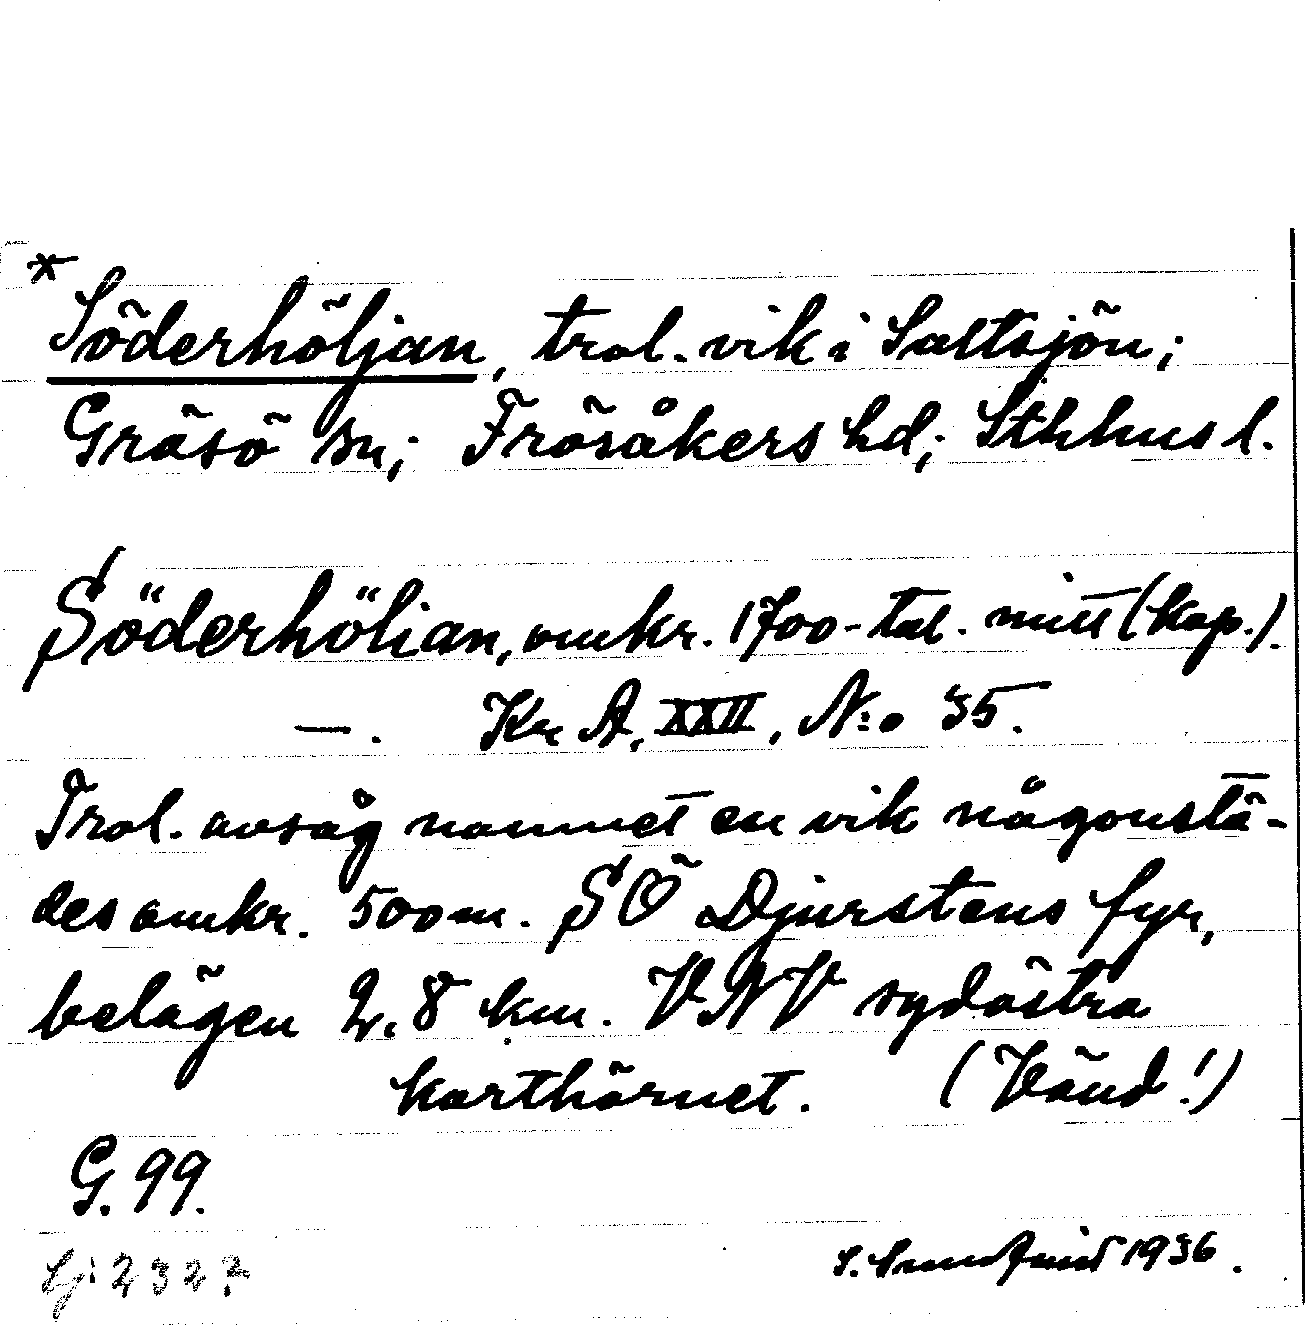 * Söderhöljan, trol. vik i Saltsjön;
Gräsö sn; Frösåkers hd; Sthlms l.
Söderhölian, omkr. 1700-tal. mitt (kop.).
—. Kr A, XXII, N:o 35.
Trol. avsåg namnet en vik någonstä-
des omkr. 500 m. SÖ Djurstens fyr,
belägen 2,8 km. VNV sydöstra
karthörnet. (Vänd!)
G. 99.
Lj: 232
S. 1936.